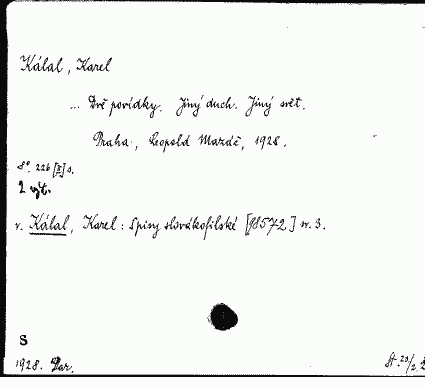 Kálal, Karel
... Dvě povídky. Jiný duch. Jiný svět.
Praha, Leopold Mazáč, 1928.
8°. 226 [II] s.
2 výt.
v. Kálal, Karel: Spisy slovákofilské [98572] sv. 3.
S
1928. Dar.